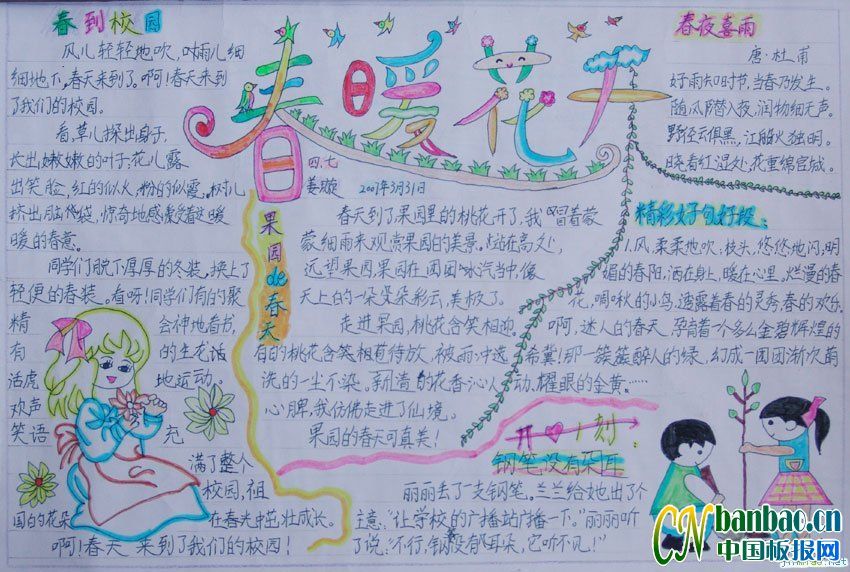 春到校园
风儿轻轻地吹,雨儿细
细地下,春天来到了。啊!春天来到
了我们的校园。
看,草儿探出身子,
长出嫩嫩的叶子;花儿露
出笑脸,红的似火,粉的似霞。树儿
挤出脑袋,惊奇地感受着这暖
暖的春意。
同学们脱下厚厚的冬装,换上了
轻便的春装。看呀!同学们有的聚
精会神地看书,
有的生龙活
虎地运动。
欢声
笑语充
满了整个
校园,祖
国的花朵在春光中茁壮成长。
啊!春天来到了我们的校园!
春暖花开
四.七
姜璇
2007年3月31日
果园de春天
春天到了果园里的桃花开了,我冒着蒙
蒙细雨来观赏果园的美景。站在高处,
远望果园,果园在团团水汽当中像
天上的一朵朵彩云,美极了。
走进果园,桃花含笑相迎,
有的桃花含苞待放,被雨冲
洗的一尘不染。的花香沁人
心脾,我仿佛走进了仙境。
果园的春天可真美!
春夜喜雨
唐·杜甫
好雨知时节,当春乃发生。
随风潜入夜,润物细无声。
野径云俱黑,江船火独明。
晓看红湿处,花重锦官城。
精彩好句好段:
1.风,柔柔地吹;枝头,悠悠地闪;明
媚的春阳,洒在身上,暖在心里。烂漫的春
花,啁啾的小鸟,透露着春的灵秀,春的欢怡。
啊,迷人的春天,孕育着一个多么金碧辉煌的
希冀!那一簇簇醉人的绿,幻成一团团渐次萌
动,耀眼的金黄。……
开心1刻:
钢笔没有耳朵
丽丽丢了一支钢笔。兰兰给她出了个
主意:“让学校的广播站广播一下。”丽丽听
了说:“不行,钢笔没有耳朵,它听不见!”
CN banbao.cn
中国板报网
jinmiao.net